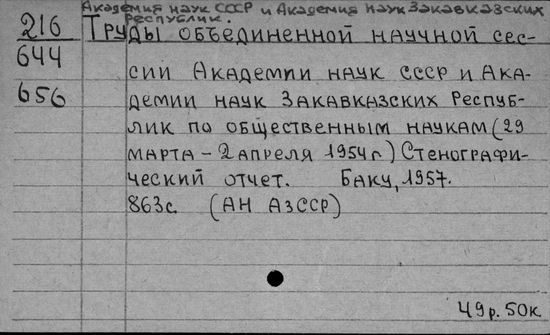 Академия наук СССР и Академия наук Закавказских
Республик.
216
644
656
Труды объединенной научной сес-
сии Академии наук СССР и Ака-
демии наук Закавказских Респуб-
лик по общественным наукам (29
марта – 2 апреля 1954 г.) Стенографи-
ческий отчет. Баку, 1957.
863с. (АН АзССР)
49р. 50к